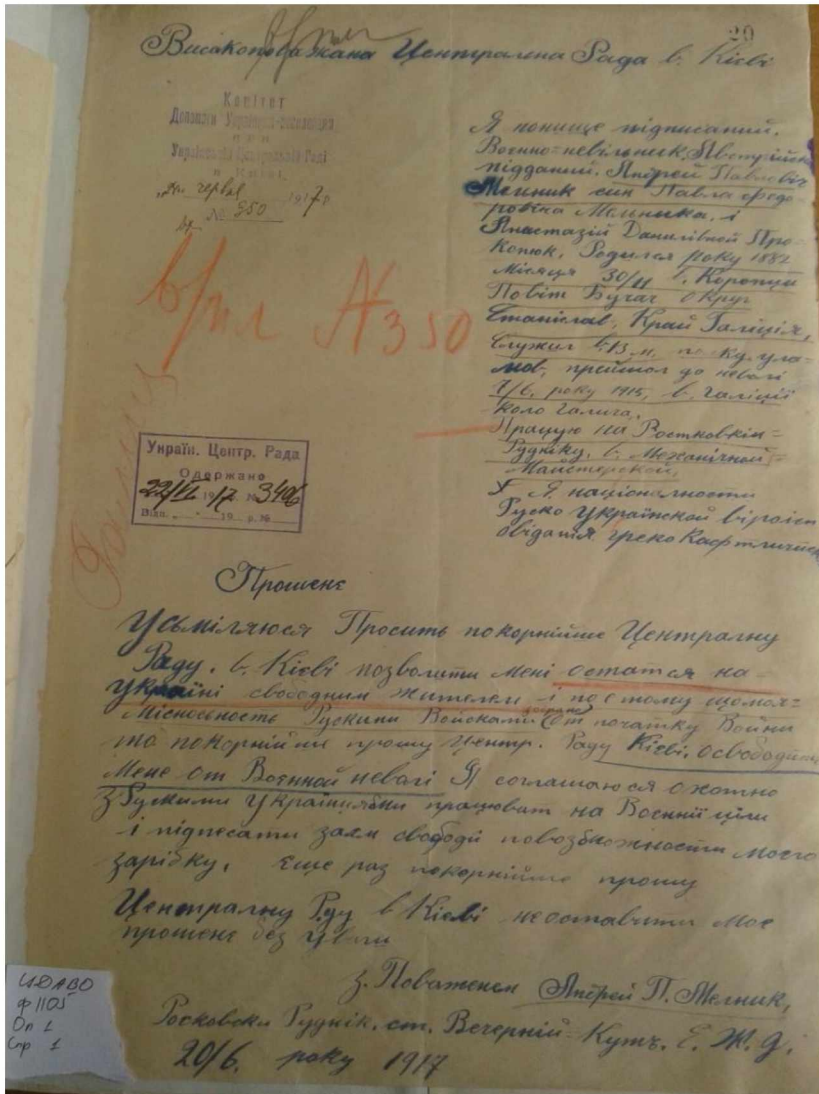 20
Високоповажана Центральна Рада в. Кієві
Комітет
Допомоги
Українській Центральній Раді
в Києві
червня 1917 р.
№ 350
Я понище підписаний.
Воєнно-невільник, Австрійск
підданий. Андрей Павлович
Мельник син Павла Федо-
ровича Мельника, і
Анастазій Данилівной Про-
копюк, Родился року 1882
Місяця 30/11 в. Коропци
Повіт Бучач округ
Станіслав, Край Галіція,
Служил в. 13 п. улa-
нов, прийшол до неволі
7/6, року 1915, в. Галіції
коло Галича,
Працую на Ростковкім-
Руднїку, в. Механічной-
Майстерской,
Я. національности
Руско Українскои віроісп
овіданія греко
А 350
Україн. Центр. Рада
Одержано
22/VI 1917 № 3406
Відп. 19 р. №
Прошенє
Усьміляюся Просить покорнійше Центральну
Раду. в. Кієві позволити мені остатся на-
Україні свободним жителем і по етому що моя=
Місцевость Рускими Войсками от початку Войни
то покорнійше прошу Центр. Раду Кієві, освободить
Мене от Воєнной неволі Я соглашаюся охотно
з Рускими Українцями працюват на Воєнні ціли
і підпесати заем свободи повозьможности моєго
зарібку, еще раз покорнійше прошу
Центральну Раду в Кієві неоставити моє
прошенє без уваги
з. Поваженєм Андрей П. Мельник,
Рудник. ст. Вечерній-Кутъ. Е. Ж. д.
20/6. року 1917
ЦДАВО
ф 1105
Оп 1
Спр 1